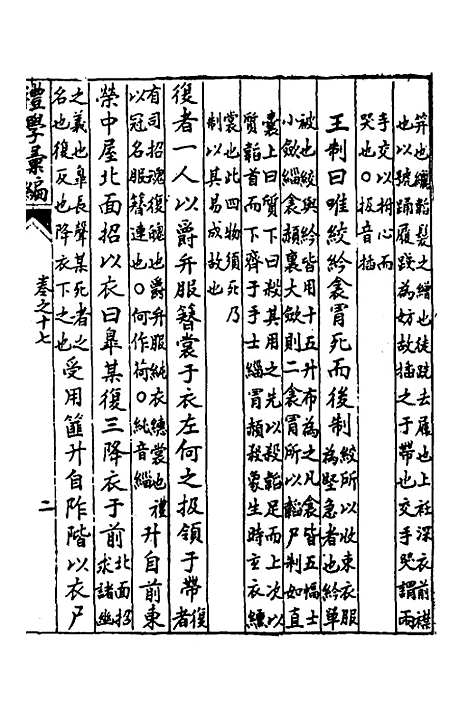 笄也纚韜髮之繒也徒跣去屨也上衽深衣前襟
也以號踊履踐為妨故插之于帶也交手哭謂兩
手交以拊心而
哭也○扱音插
王制曰唯絞紟衾冒死而後制
絞所以收束衣服
為堅急者也紟單
被也絞與紟皆用十五升布為之凡衾皆五幅士
小歛緇衾赬裏大歛則二衾冒所以韜尸制如直
囊上曰質下曰殺其用之先以殺韜足而上次以
質韜首而下齊于手士緇冒赬殺象生時玄衣纁
裳也此四物須死乃
制以其易成故也
復者一人以爵弁服簪裳于衣左何之扱領于帶
復者
有司招魂復魄也爵弁服純衣纁裳也禮
以冠名服簪連也○何作荷○純音緇
升自前東
榮中屋北面招以衣曰皐某復三降衣于前
北面招
求諸幽
之義也皐長聲某死者之
名也復反也降衣下之也
受用篚升自阼階以衣尸
禮學彙編
卷之十七
二